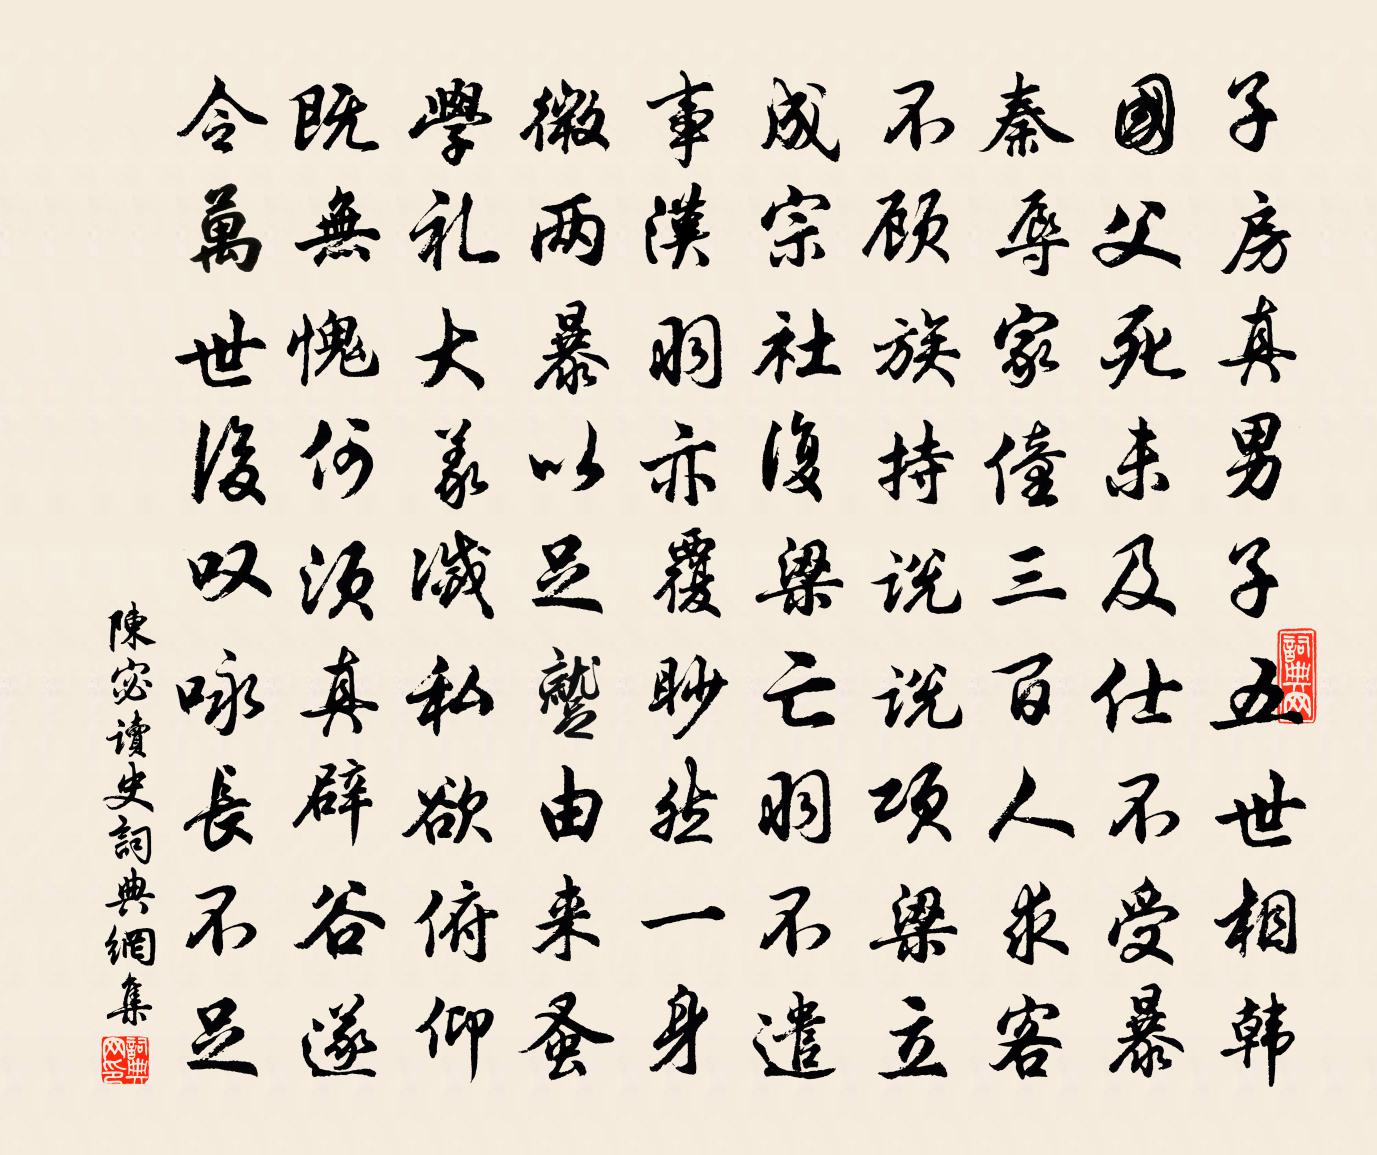 子房真男子五世相韩
國父死未及仕不受暴
秦辱家僮三百人求客
不顾族持说说项梁立
成宗社復梁亡羽不遣
事漢羽亦覆眇然一身
微两暴以足由来蚤
學礼大義滅私欲俯仰
既無愧何须真辟谷遂
令萬世後叹咏長不足
陳宓讀史詞典網集
詞典网
詞典网印